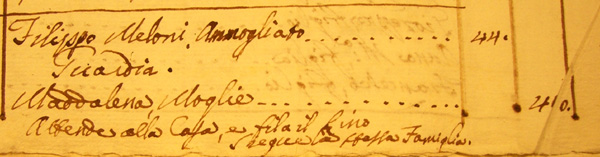 Filippo Meloni Ammogliato . . . . . . . . . . . 44.
Maddalena Moglie . . . . . . . . . . . . 40.
Attende alla Casa, e fila il Lino
segue la stessa Famiglia.